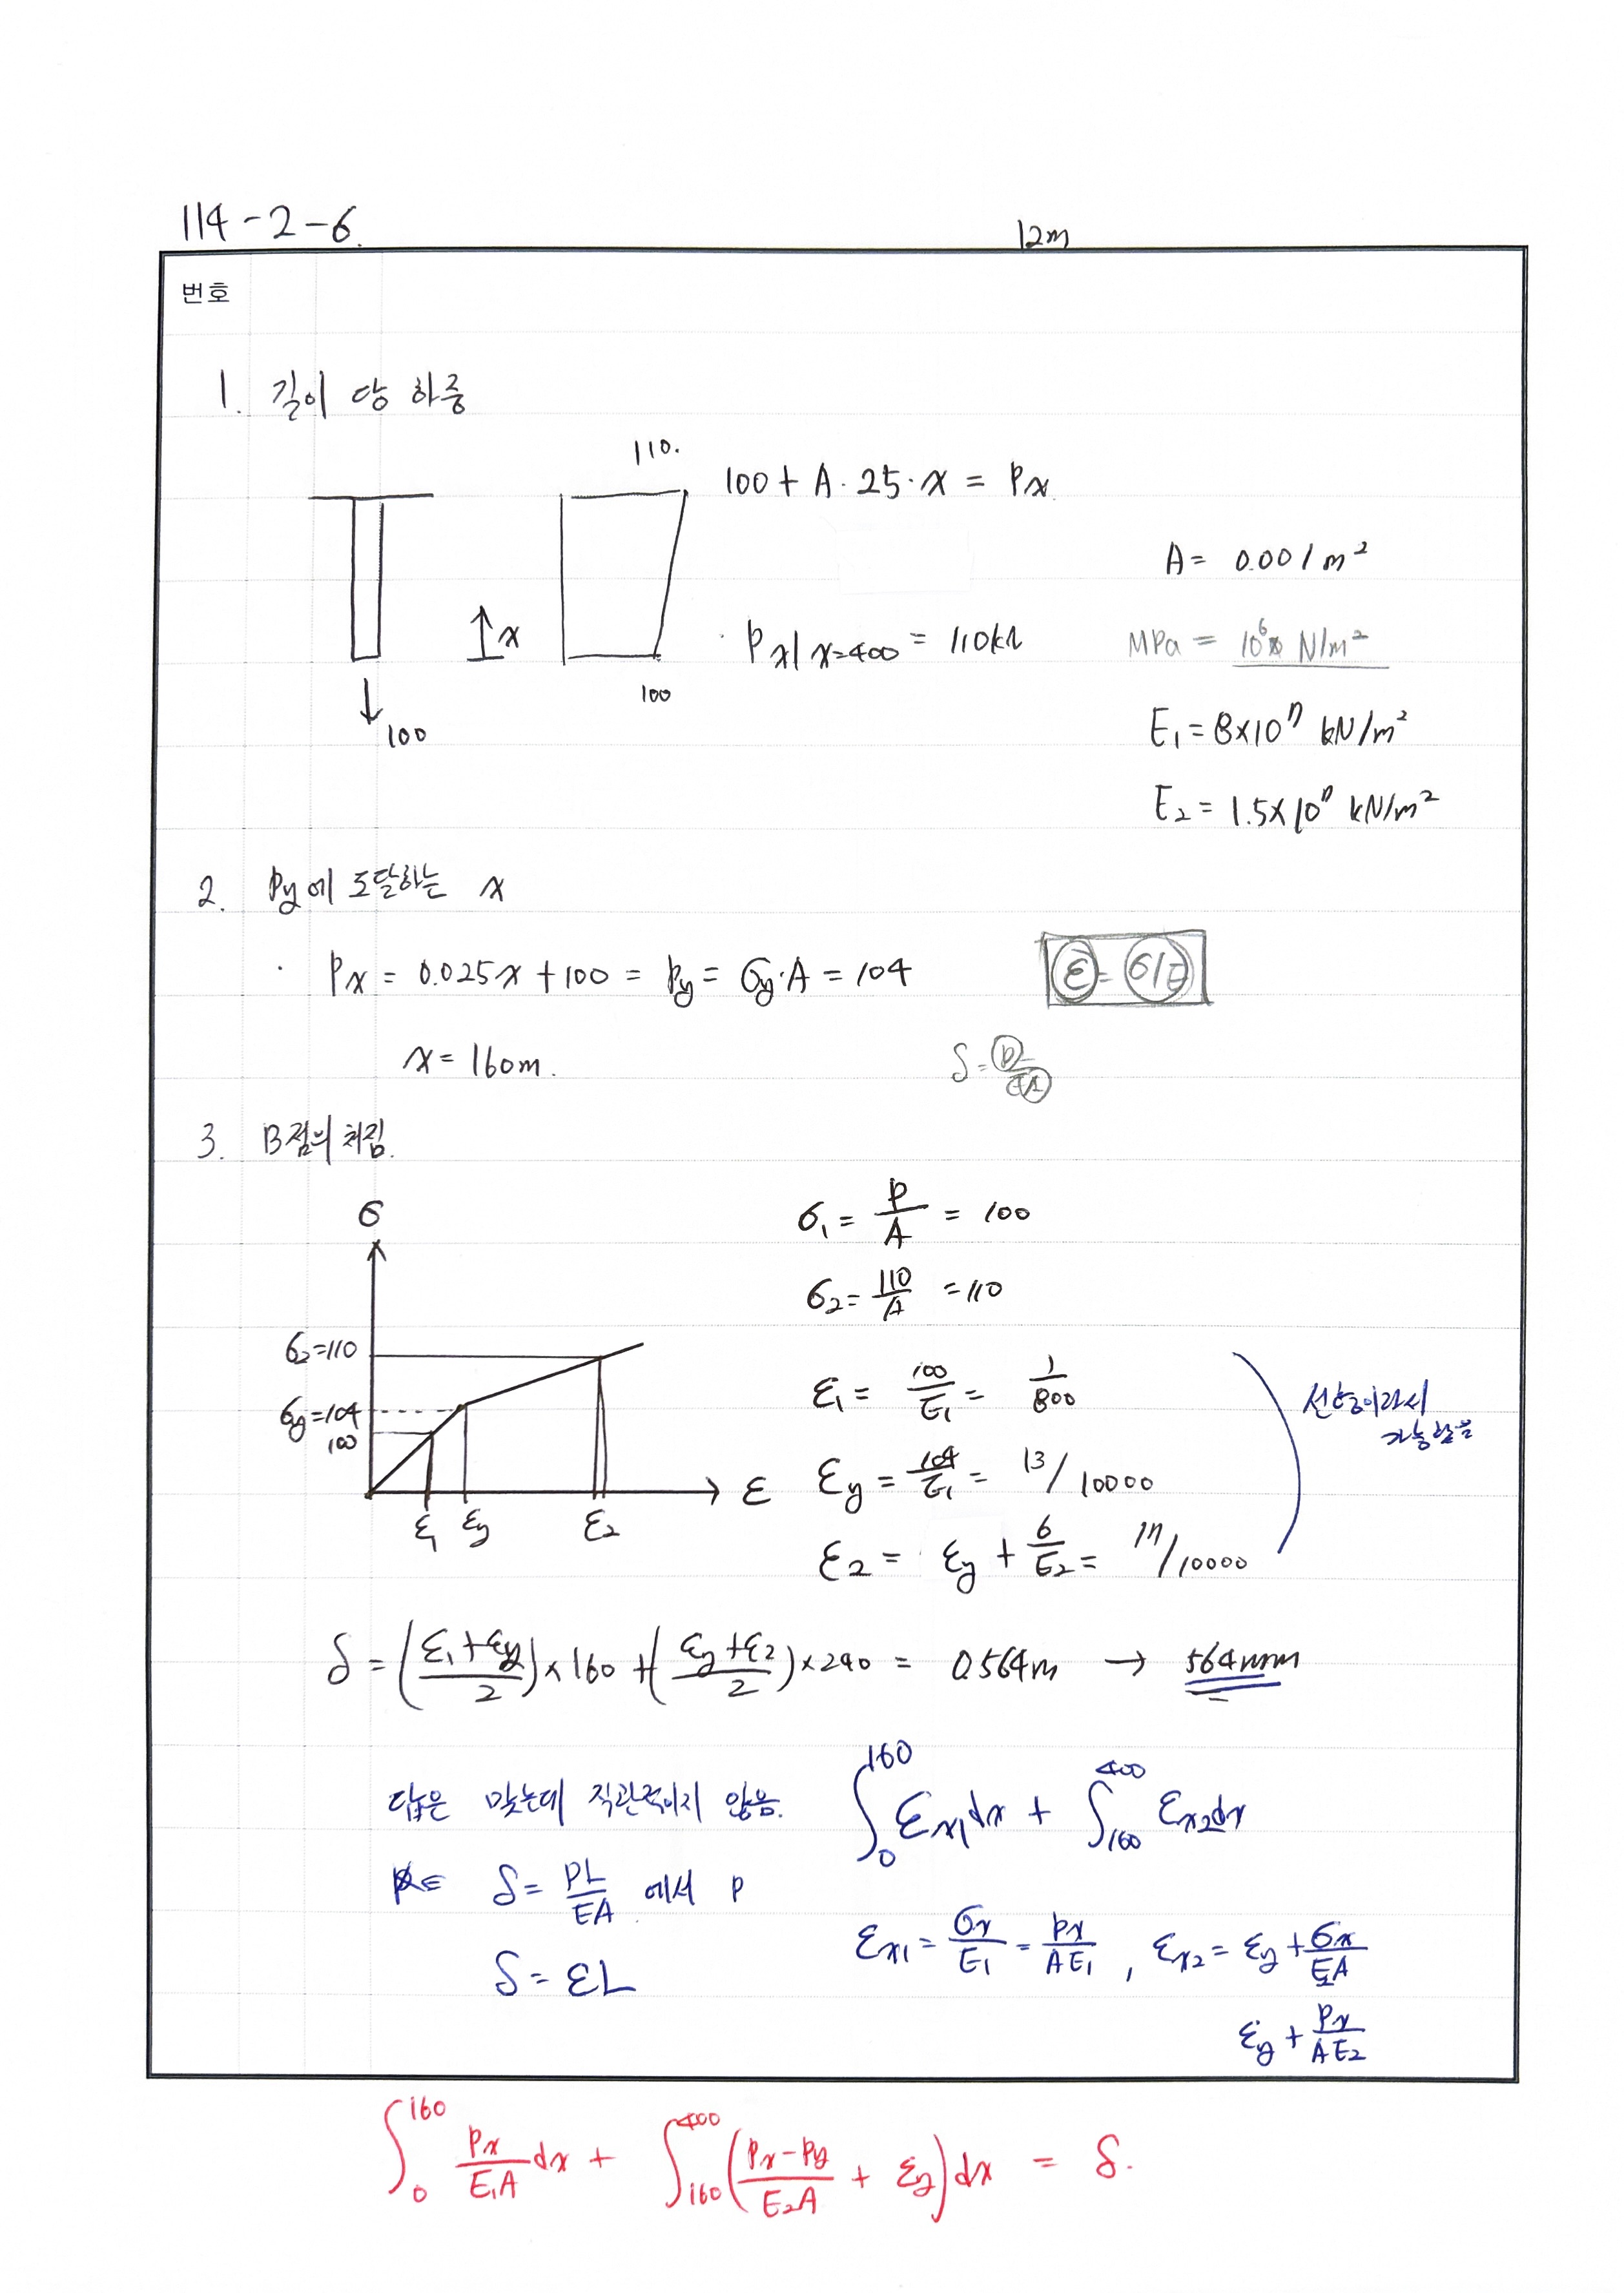 114-2-6.
12m
번호
1. 길이 당 하중
110.
100 + A·25·x = Px
A = 0.001m²
x
· Px|x=400 = 110kN
MPa = 10⁶ N/m²
100
100
E₁ = 8×10⁷ kN/m²
E₂ = 1.5×10⁷ kN/m²
2. Py에 도달하는 x
· Px = 0.025x + 100 = Py = σy·A = 104
ε = σ/E
x = 160m.
3. B점의 처짐.
σ
σ₁ = P/A = 100
σ₂ = 110/A = 110
σ₂=110
σy=104
100
ε
ε₁ εy ε₂
ε₁ = 100/E₁ = 1/800
선형이라서
가능했음
εy = 104/E₁ = 13/10000
ε₂ = εy + 6/E₂ = 17/10000
δ = ((ε₁+εy)/2)×160 + ((εy+ε₂)/2)×240 = 0.564m → 564mm
답은 맞는데 직관적이지 않음.
∫₀¹⁶⁰ εx₁dx + ∫₁₆₀⁴⁰⁰ εx₂dx
δ = PL/EA 에서 P
δ = εL
εx₁ = σx/E₁ = Px/AE₁ , εx₂ = εy + σx/E₂A
εy + Px/AE₂
∫₀¹⁶⁰ Px/E₁A dx + ∫₁₆₀⁴⁰⁰ ((Px-Py)/E₂A + εy)dx = δ.